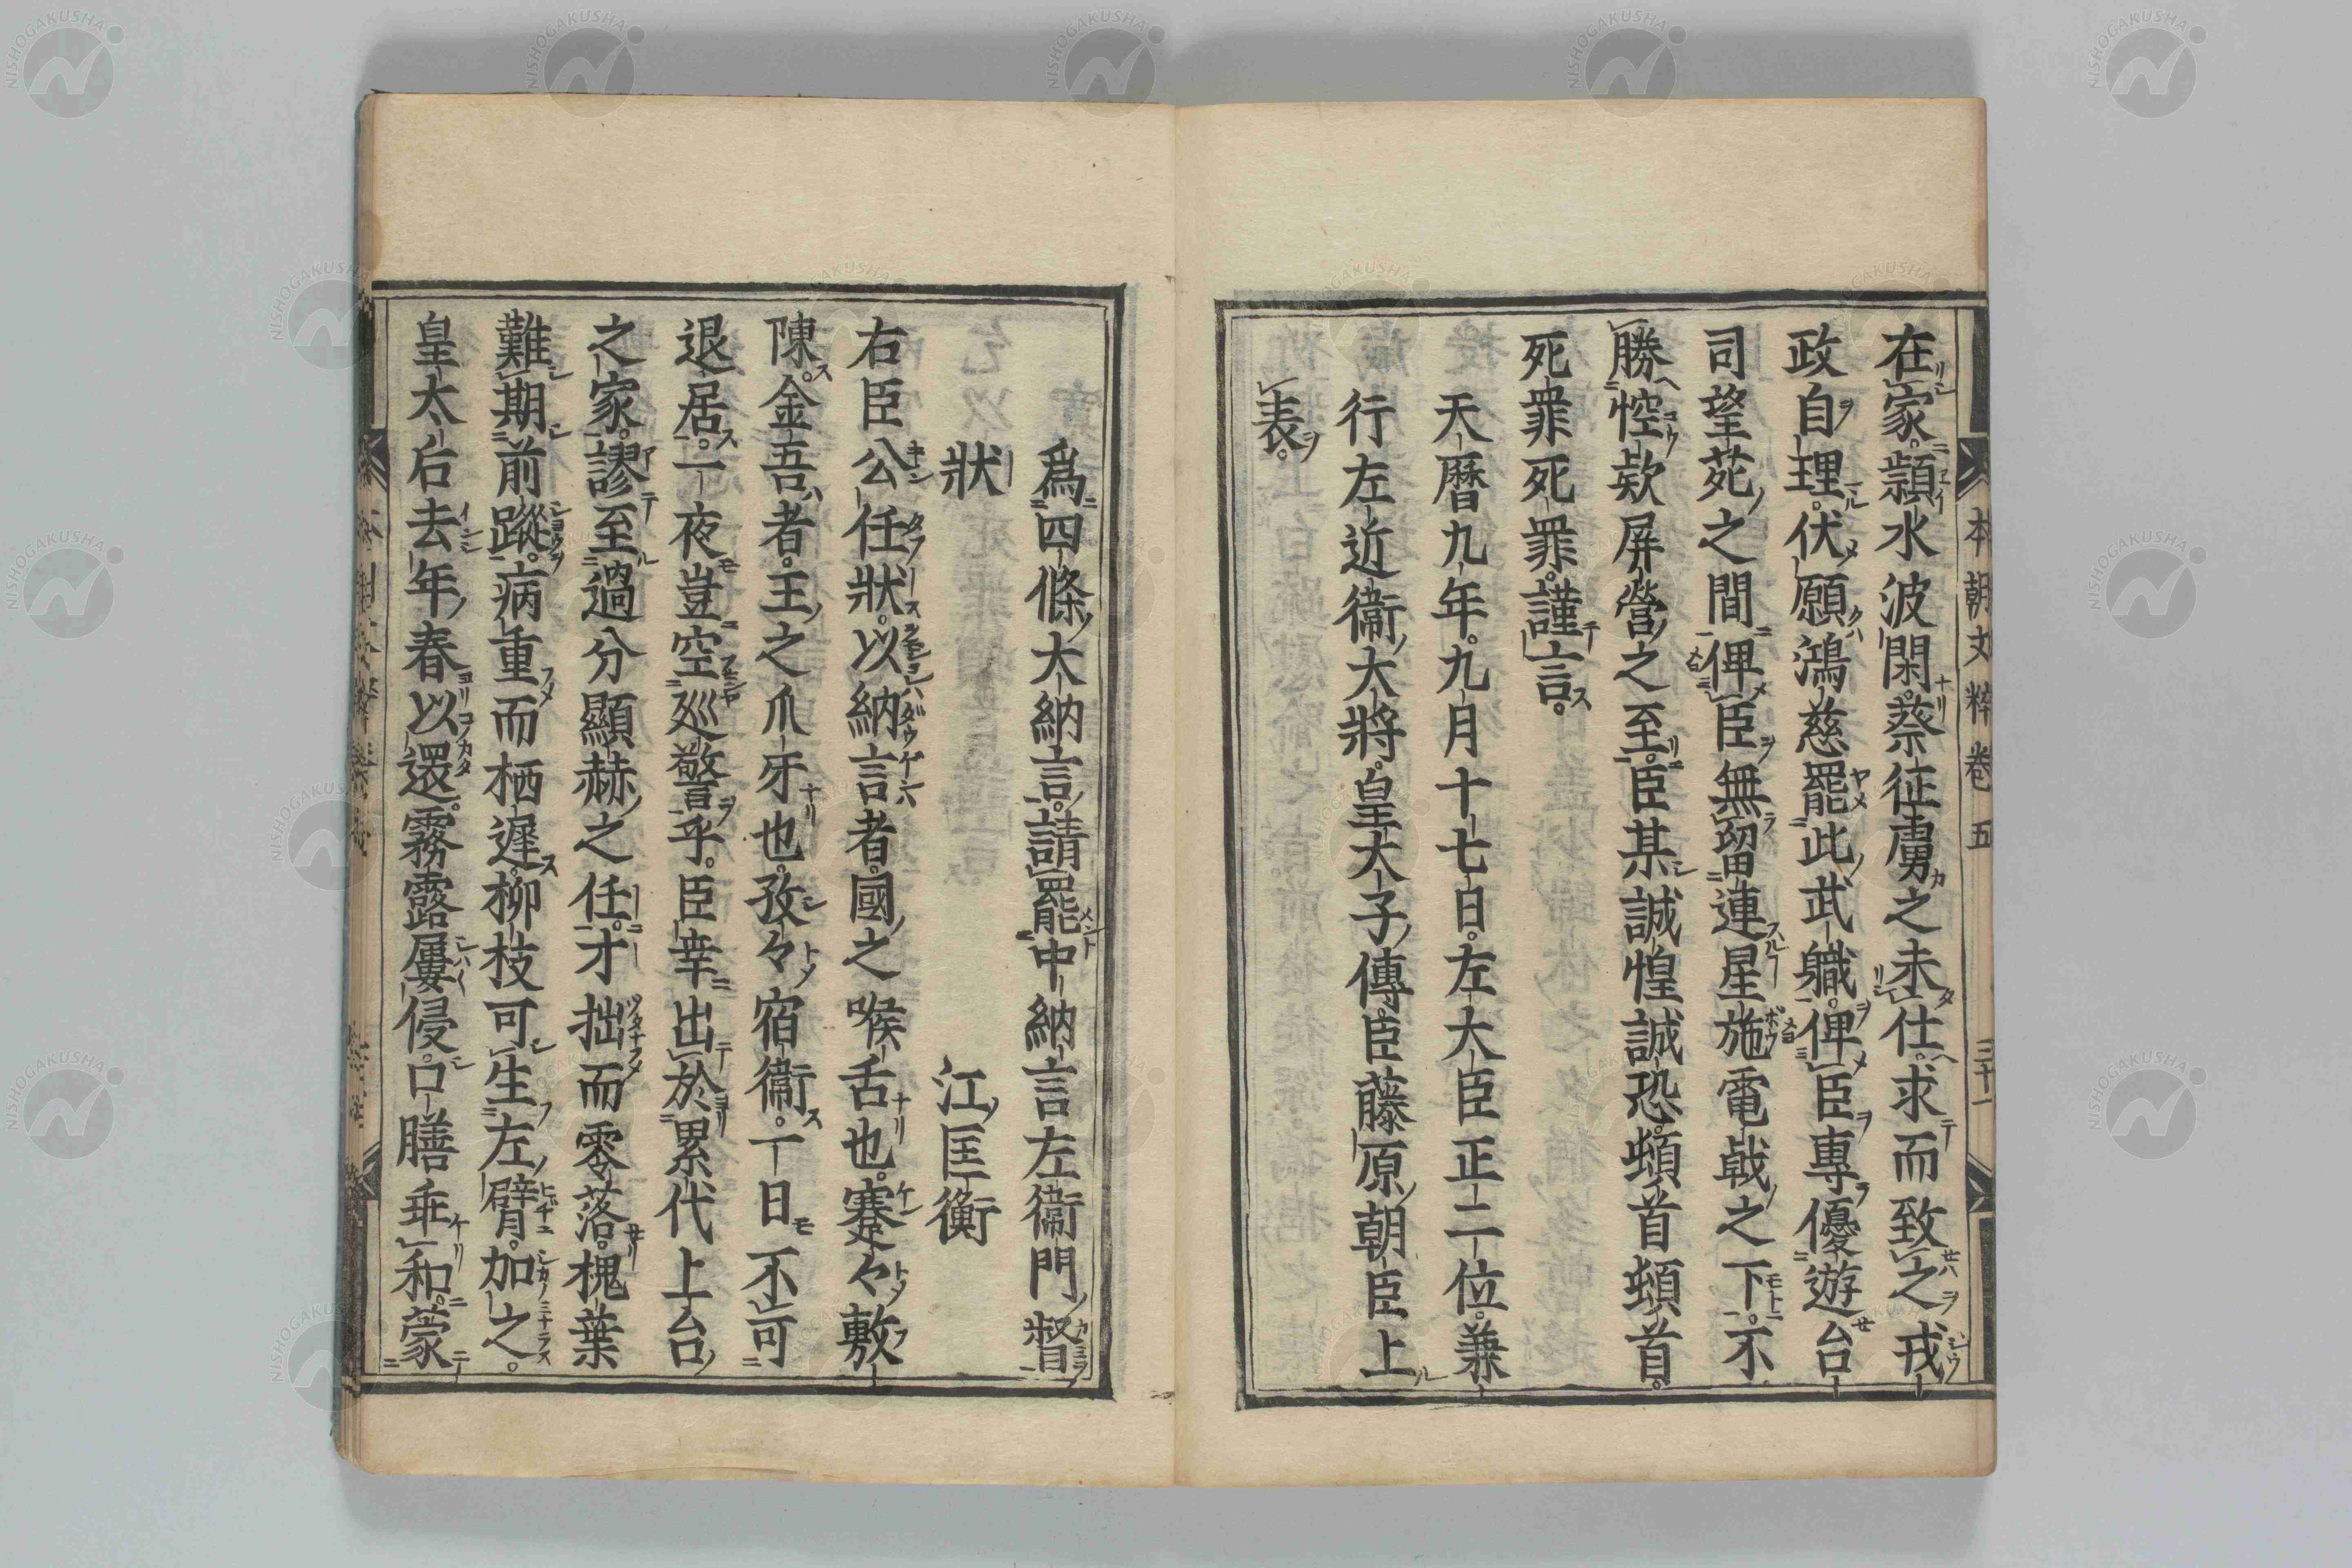 在家。頴水波閑。蔡征虜之未仕。求而致之。戎
政自理。伏願鴻慈罷此武軄。俾臣專優遊台
司望苑之間。俾臣無留連星施電戟之下。不
勝悾欵屏營之至。臣某誠惶誠恐。頓首頓首。
死罪死罪。謹言。
天曆九年。九月十七日。左大臣正二位。兼
行左近衞大將。皇太子傅。臣藤原朝臣上
表。
本朝文粹卷五 三十一
爲四條大納言。請罷中納言左衞門督
狀 江匡衡
右臣公任狀。以納言者。國之喉舌也。蹇々敷
陳。金吾者。王之爪牙也。孜々宿衞。一日不可
退居。一夜豈空巡警乎。臣幸出於累代上台
之家。謬至過分顯赫之任。才拙而零落。槐葉
難期前蹤。病重而栖遲。柳枝可生左臂。加之。
皇太后去年春以還。霧露屢侵。口膳乖和。蒙